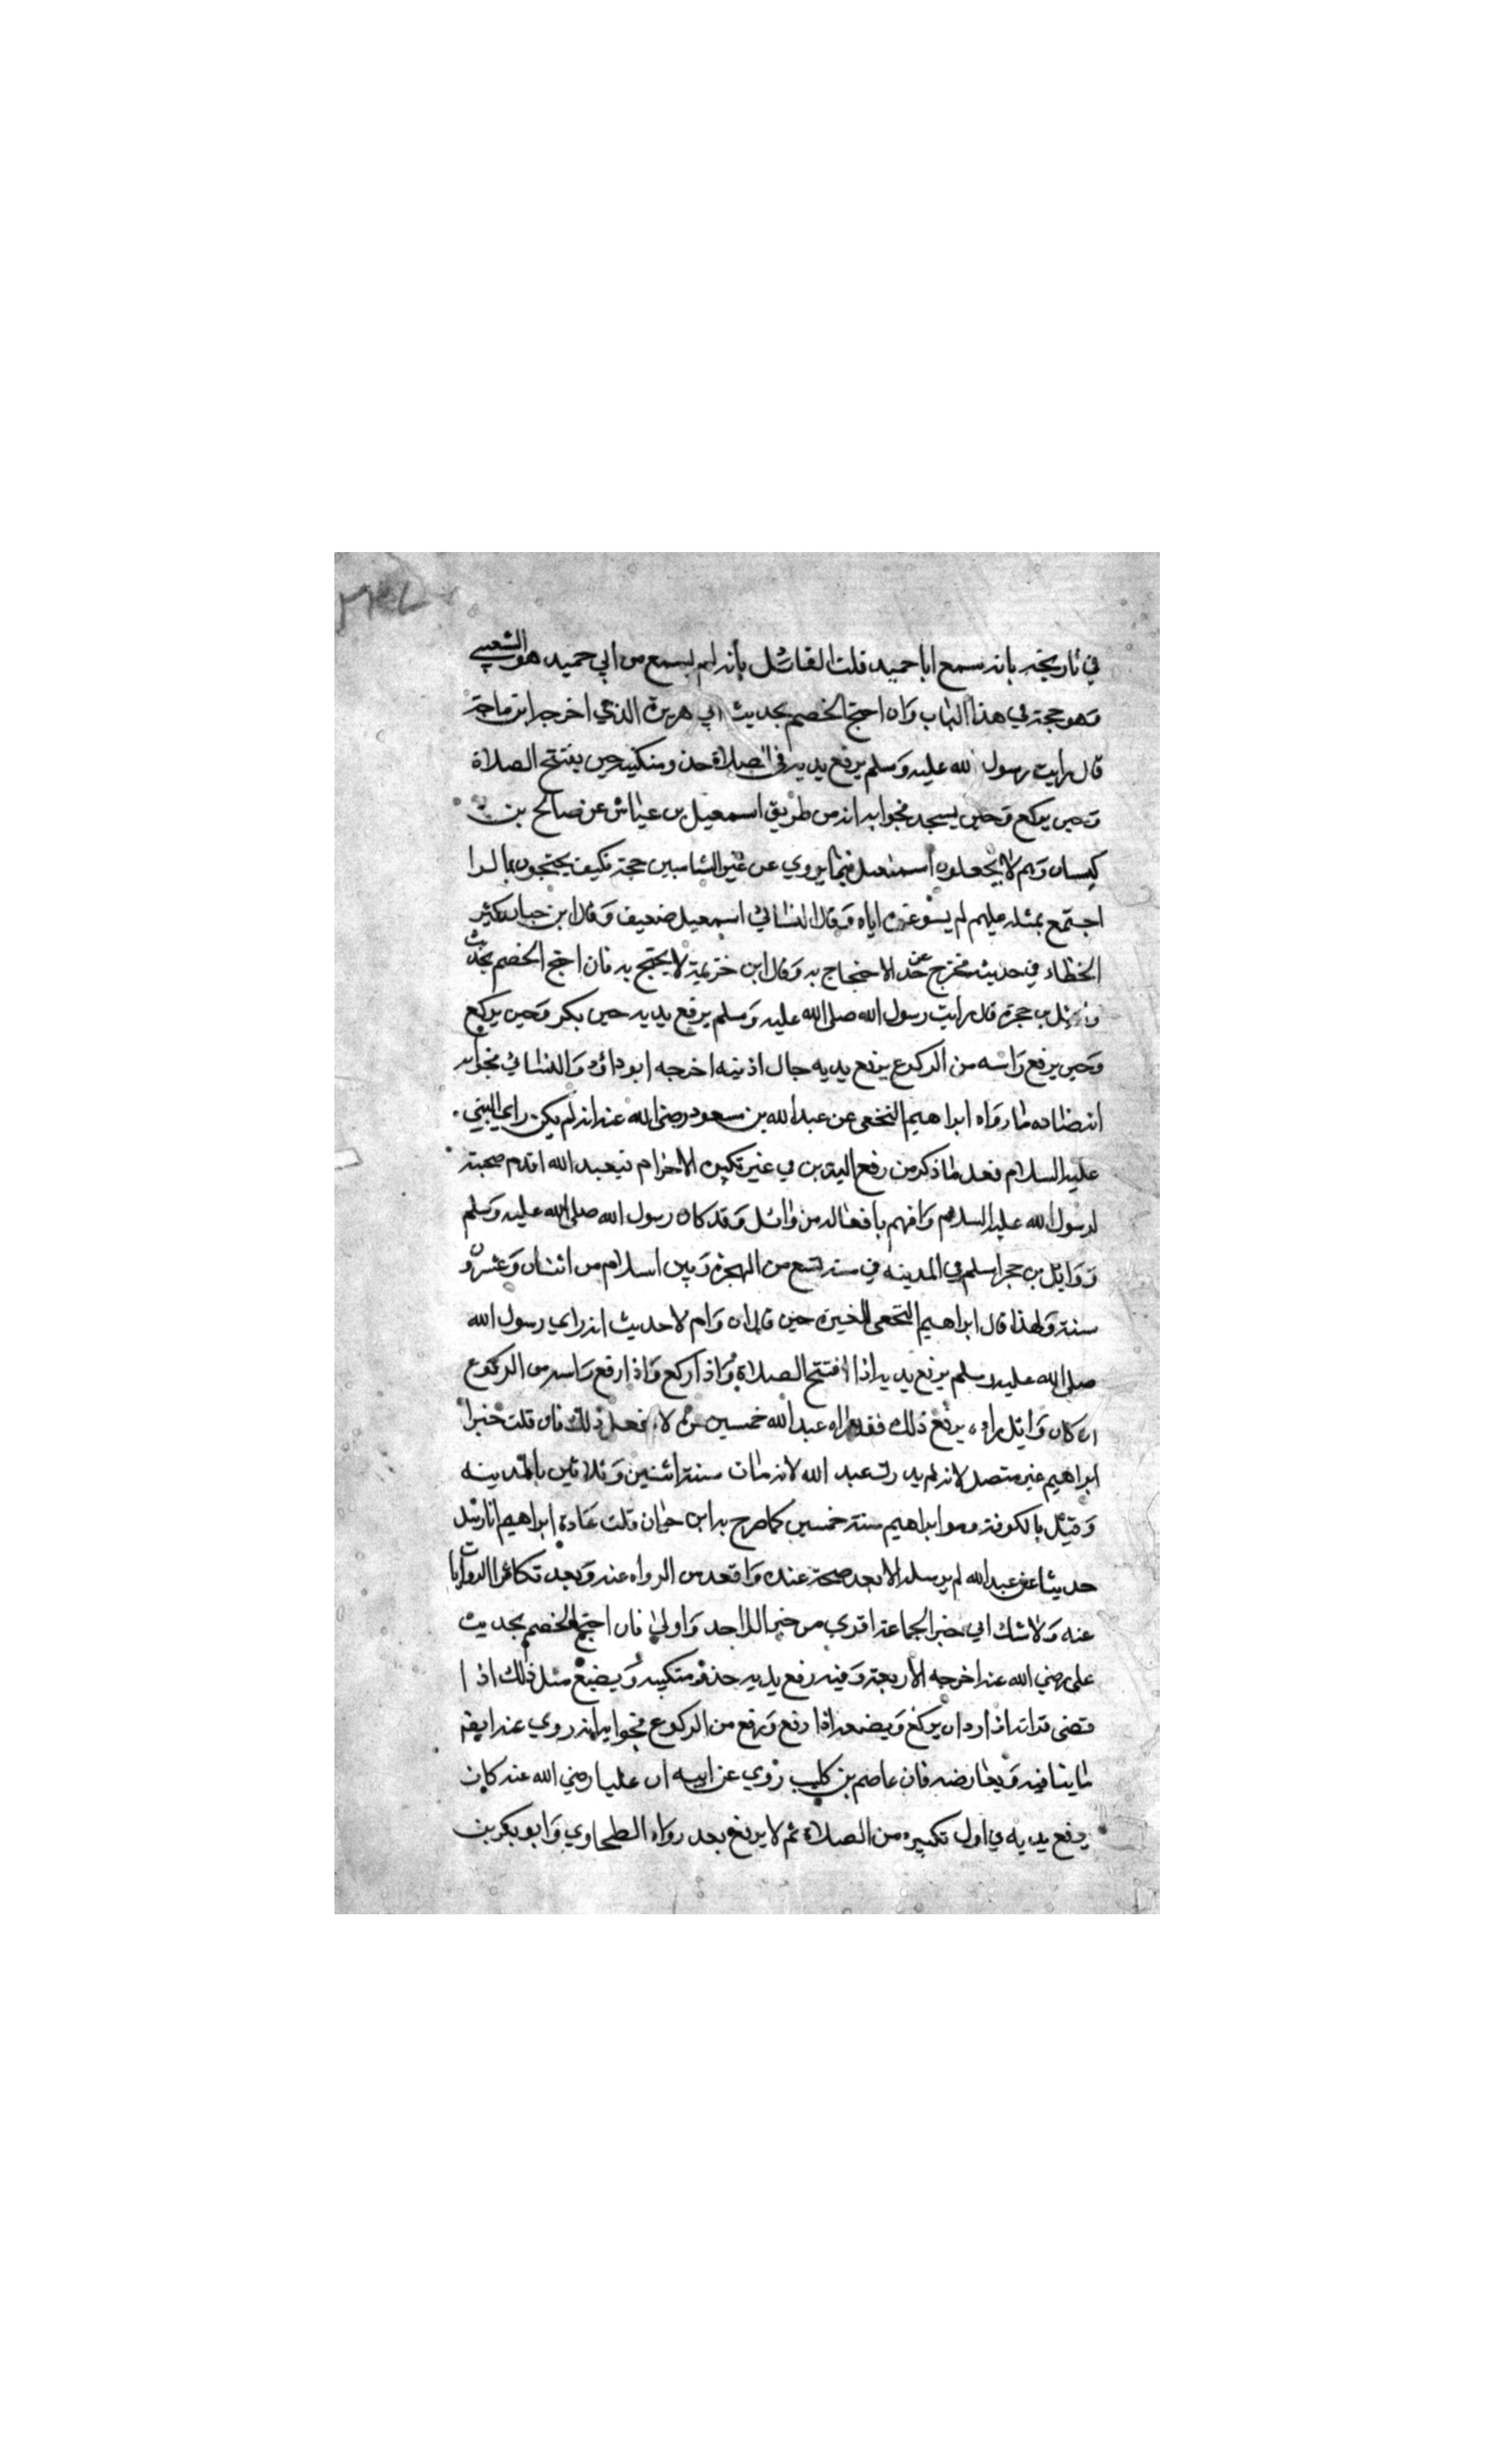 في تاريخه بانه سمع ابا حميد قلت القائل بأنه لم يسمع من أبي حميد هو الشعبي
وهو حجة في هذا الباب وان احتج الخصم بحديث ابي هريرة الذي اخرجه ابن ماجة
قال رايت رسول الله عليه وسلم يرفع يديه في الصلاة حذو منكبيه حين يفتتح الصلاة
وحين يركع وحين يسجد فجوابه انه من طريق اسمعيل بن عياش عن صالح بن
كيسان وهم لا يجعلون اسمعيل فيما يروي عن غير الشاميين حجة فكيف يحتجون بما لو
اجتمع بمثله عليهم لم يسوغوه اياه وقال النسائي اسمعيل ضعيف وقال ابن حبان كثير
الخطاء في حديثه فخرج عن حد الاحتجاج به وقال ابن خزيمة لا يحتج به فان احتج الخصم بحديث
وائل بن حجرة قال رايت رسول الله صلى الله عليه وسلم يرفع يديه حين يكبر وحين يركع
وحين يرفع راسه من الركوع يرفع يديه حيال اذنيه اخرجه ابو داود والنسائي فجوابه
انه ضاده ما رواه ابراهيم النخعي عن عبد الله بن مسعود رضي الله عنه انه لم يكن راي النبي
عليه السلام فعل ما ذكر من رفع اليدين في غير تكبيرة الاحرام فعبد الله اقدم صحبة
لرسول الله عليه السلام وافهم بافعاله من وائل وقد كان رسول الله صلى الله عليه وسلم
ووايل بن حجر اسلم في المدينه في سنة تسع من الهجرة وبين اسلامهما اثنتان وعشرون
سنة ولهذا قال ابراهيم النخعي للمغيرة حين قال ان وام لا حديث انه راي رسول الله
صلى الله عليه وسلم يرفع يديه اذا افتتح الصلاة واذا ركع واذا رفع راسه من الركوع
ان كان وايل راه يرفع ذلك فقد راه عبد الله خمسين مرة لا يفعل ذلك فان قلت خبر
ابراهيم غير متصل لانه لم يدرك عبد الله لانه مات سنة اثنين وثلاثين بالمدينه
وقيل بالكوفة ومو ابراهيم سنة خمسين كما صرح به ابن حبان قلت عادة ابراهيم اذا ارسل
حديثا عن عبد الله لم يرسله الا بعد صحته عنده واقعد من الرواه عنه وبعد تكاثر الروايات
عنه ولا شك ان خبر الجماعة اقوي من خبر الواحد واولى فان احتج الخصم بحديث
علي رضي الله عنه اخرجه الاربعة وفيه رفع يديه حذو منكبيه ويضع مثل ذلك اذا
قضى قراته اذا اراد ان يركع ويضعه اذا رفع ويرفع من الركوع فجوابه انه روي عنه ايضا
ما ينافيه ويعارضه فان عاصم بن كليب روي عن ابيه ان عليا رضي الله عنه كان
يرفع يديه في اول تكبيره من الصلاة ثم لا يرفع بعد رواه الطحاوي وابو بكر بن